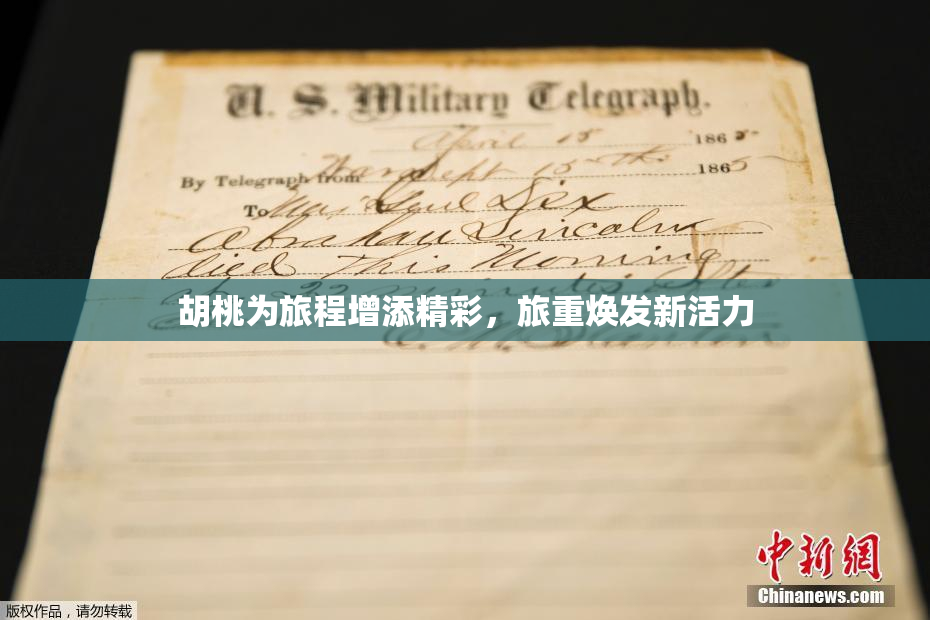 U. S. Military Telegraph.
April 15 1865-
By Telegraph from War Dept 15th 1865
To Maj Genl Dix
Abraham Lincoln
died This Morning
at 22 minutes after
胡桃为旅程增添精彩，旅重焕发新活力
E. M. Stanton
中新网
Chinanews.com
版权作品，请勿转载